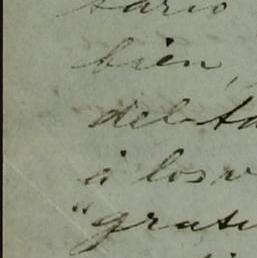 sario
bien,
delata
á los v
"grati